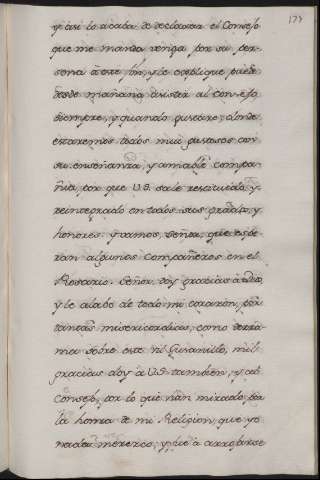 174
y asi lo acaba de declarar el Consejo
que me manda venga por su per-
sona à este fin, y le explique puede
desde mañana asistir al Consejo
siempre, y quando gustare; donde
estaremos todos mui gustosos con
su enseñanza, y amiable compa-
ñia, por que V.S. sale restituido, y
reintegrado en todos sus grados, y
honores: y vamos, Señor, que espe-
ran algunos compañeros en el
Rosario. Señor doy gracias à Dios,
y le alabo de todo mi corazon, por
tantas misericordias, como derra-
ma sobre este vil Gusanillo, mil
gracias doy à V.S. tambien, y al
Consejo, por lo que han mirado por
la honra de mi Religion, que yo
nada merezco; y fue à arrojarse